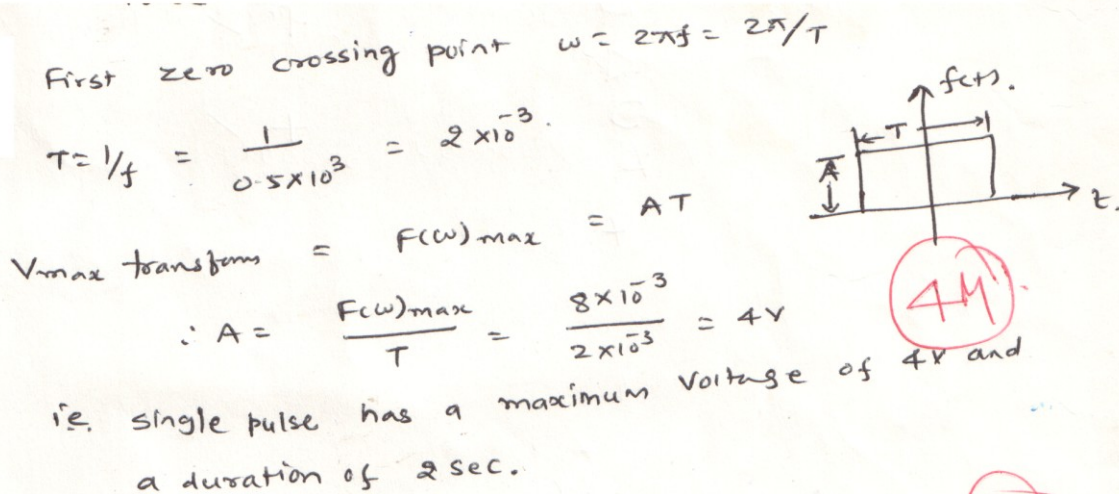 First zero crossing point ω = 2πf = 2π/T
T = 1/f = 1/0.5×10³ = 2×10⁻³.
f(t).
T
A
t.
Vmax transform = F(ω)max = AT
4M
∴ A = F(ω)max/T = 8×10⁻³/2×10⁻³ = 4V
i.e. single pulse has a maximum voltage of 4V and
a duration of 2 sec.